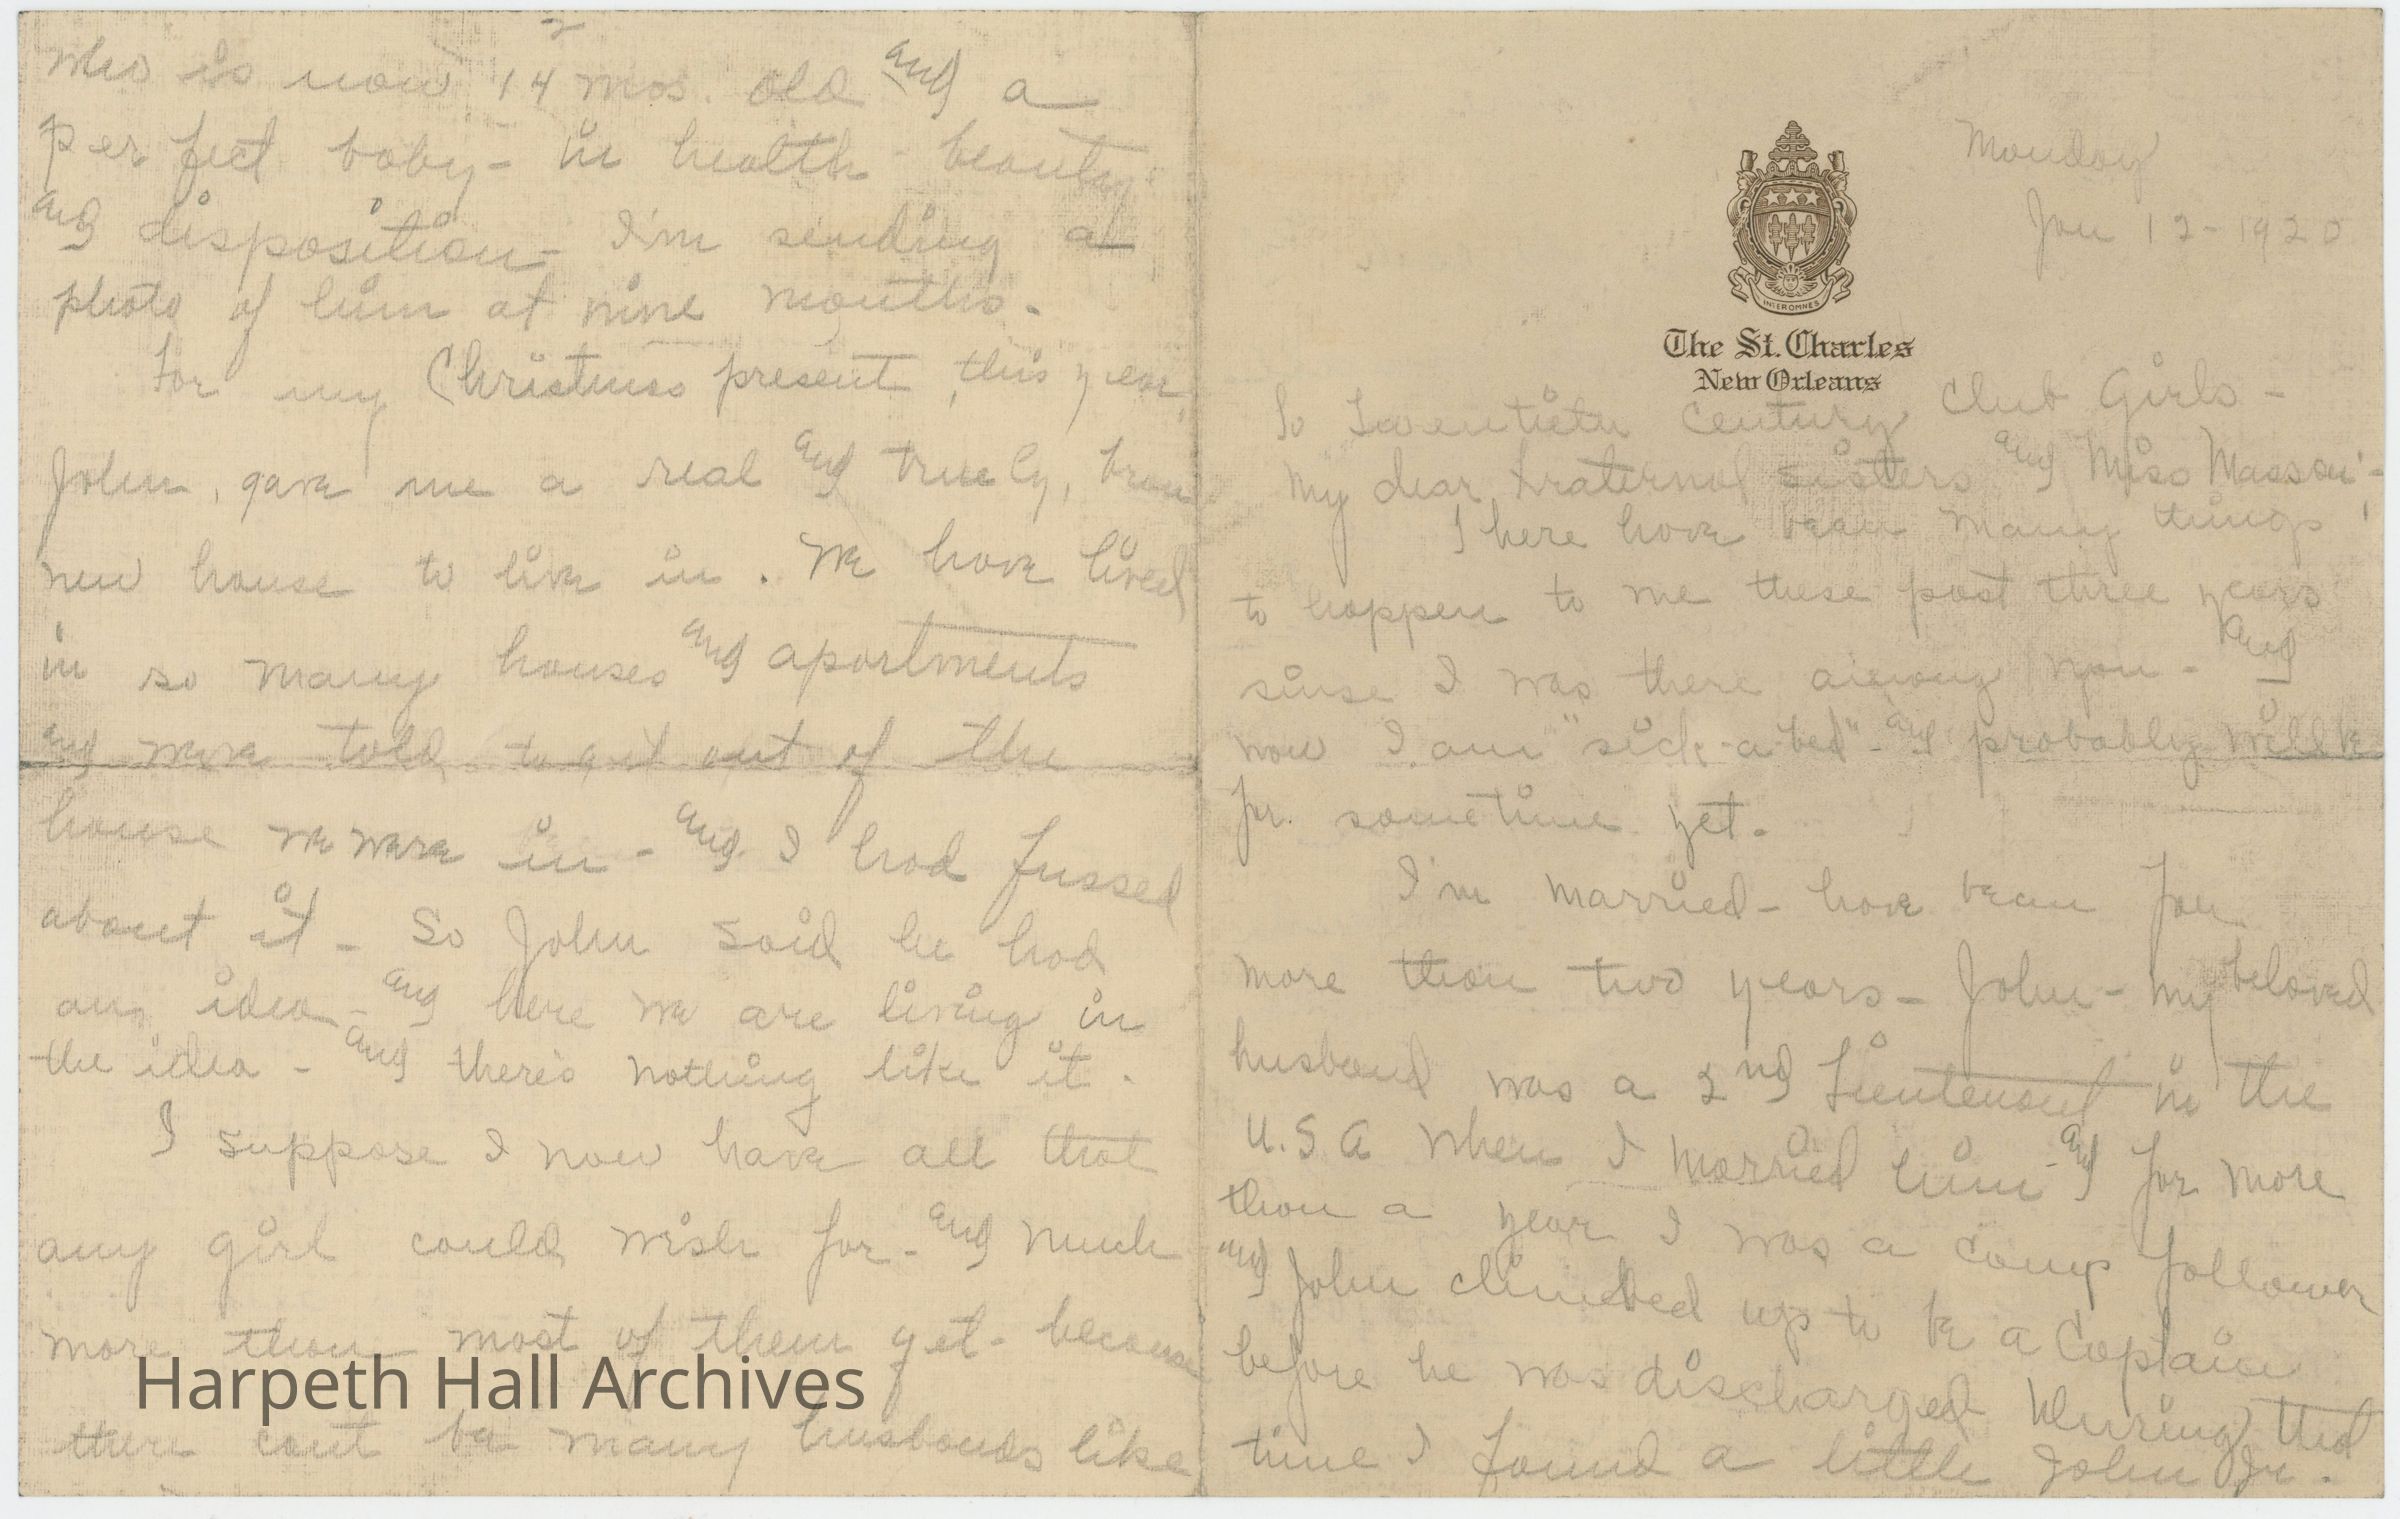 Monday
Jan 12-1920
INTEROMNES
The St. Charles
New Orleans
To Twentieth Century Club Girls -
My dear fraternal sisters and Miss Masson -
There have been many things
to happen to me these past three years
sinse I was there among you - and
now I am "sick-a-bed" - and probably will be
for sometime yet.
I'm married - have been for
more than two years - John - my beloved
husband was a 2nd Lieutenant in the
U.S.A when I married him - and for more
than a year I was a camp follower
and John climbed up to be a Captain
before he was discharged During that
time I found a little John Jr.
2
who is now 14 mos. old and a
perfect baby - in health - beauty -
and disposition - I'm sending a
photo of him at nine months.
For my Christmas present, this year,
John, gave me a real and truely, bran
new house to live in. We have lived
in so many houses and apartments
and were told to get out of the
house we were in - and I had fussed
about it - So John said he had
an idea - and here we are living in
the idea - and there's nothing like it.
I suppose I now have all that
any girl could wish for - and much
more than most of them get - because
there cant be many husbands like
Harpeth Hall Archives